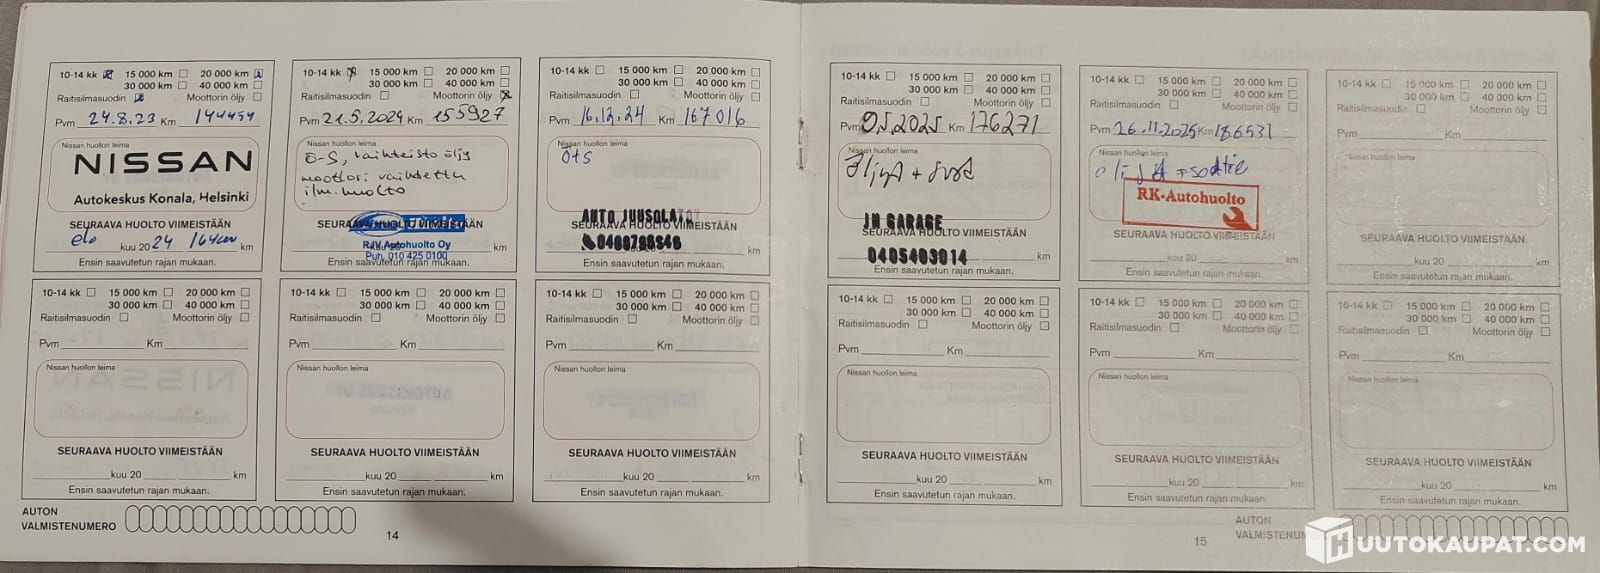 10-14 kk 15 000 km 20 000 km
30 000 km 40 000 km
Raitisilmasuodin Moottorin öljy
Pvm 24.8.23 Km 144454
Nissan huollon leima
NISSAN
Autokeskus Konala, Helsinki
SEURAAVA HUOLTO VIIMEISTÄÄN
elo kuu 2024 km
Ensin saavutetun rajan mukaan.
10-14 kk 15 000 km 20 000 km
30 000 km 40 000 km
Raitisilmasuodin Moottorin öljy
Pvm 21.5.2024 Km 155927
Nissan huollon leima
Ö-S, vaihteisto öljy
moottori vaihdettu
ilm. huolto
SEURAAVA HUOLTO VIIMEISTÄÄN
RJV Autohuolto Oy
Puh. 010 425 0100
kuu 20 km
Ensin saavutetun rajan mukaan.
10-14 kk 15 000 km 20 000 km
30 000 km 40 000 km
Raitisilmasuodin Moottorin öljy
Pvm 16.12.24 Km 167016
Nissan huollon leima
öts
AUTO JUUSOLA
SEURAAVA HUOLTO VIIMEISTÄÄN
0400798546
km
Ensin saavutetun rajan mukaan.
10-14 kk 15 000 km 20 000 km
30 000 km 40 000 km
Raitisilmasuodin Moottorin öljy
Pvm 9.5.2025 Km 176271
Nissan huollon leima
JN GARAGE
SEURAAVA HUOLTO VIIMEISTÄÄN
0405403014
km
Ensin saavutetun rajan mukaan.
10-14 kk 15 000 km 20 000 km
30 000 km 40 000 km
Raitisilmasuodin Moottorin öljy
Pvm 26.11.2025 Km 186531
Nissan huollon leima
RK-Autohuolto
SEURAAVA HUOLTO VIIMEISTÄÄN
kuu 20 km
Ensin saavutetun rajan mukaan.
10-14 kk 15 000 km 20 000 km
30 000 km 40 000 km
Raitisilmasuodin Moottorin öljy
Pvm Km
Nissan huollon leima
SEURAAVA HUOLTO VIIMEISTÄÄN
kuu 20 km
Ensin saavutetun rajan mukaan.
10-14 kk 15 000 km 20 000 km
30 000 km 40 000 km
Raitisilmasuodin Moottorin öljy
Pvm Km
Nissan huollon leima
SEURAAVA HUOLTO VIIMEISTÄÄN
kuu 20 km
Ensin saavutetun rajan mukaan.
10-14 kk 15 000 km 20 000 km
30 000 km 40 000 km
Raitisilmasuodin Moottorin öljy
Pvm Km
Nissan huollon leima
SEURAAVA HUOLTO VIIMEISTÄÄN
kuu 20 km
Ensin saavutetun rajan mukaan.
10-14 kk 15 000 km 20 000 km
30 000 km 40 000 km
Raitisilmasuodin Moottorin öljy
Pvm Km
Nissan huollon leima
SEURAAVA HUOLTO VIIMEISTÄÄN
kuu 20 km
Ensin saavutetun rajan mukaan.
10-14 kk 15 000 km 20 000 km
30 000 km 40 000 km
Raitisilmasuodin Moottorin öljy
Pvm Km
Nissan huollon leima
SEURAAVA HUOLTO VIIMEISTÄÄN
kuu 20 km
Ensin saavutetun rajan mukaan.
10-14 kk 15 000 km 20 000 km
30 000 km 40 000 km
Raitisilmasuodin Moottorin öljy
Pvm Km
Nissan huollon leima
SEURAAVA HUOLTO VIIMEISTÄÄN
kuu 20 km
Ensin saavutetun rajan mukaan.
10-14 kk 15 000 km 20 000 km
30 000 km 40 000 km
Raitisilmasuodin Moottorin öljy
Pvm Km
Nissan huollon leima
SEURAAVA HUOLTO VIIMEISTÄÄN
kuu 20 km
Ensin saavutetun rajan mukaan.
AUTON
VALMISTENUMERO
14
AUTON
15
HUUTOKAUPAT.COM